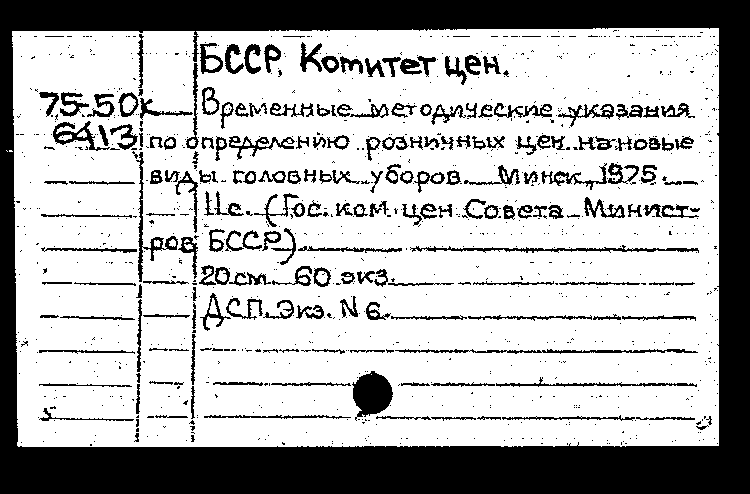 БССР. Комитет цен.
75-50к Временные методические указания
6413 по определению розничных цен на новые
виды головных уборов. Минск, 1975.
11с. (Гос. ком. цен Совета Минист-
ров БССР)
20см. 60 экз.
ДСП. Экз. N 6.